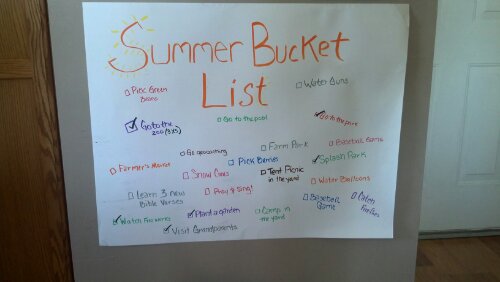 Summer Bucket
List
Pick Green
Beans
Water Guns
Go to the
zoo
Go to the pool
Go to the park
Go geocaching
Farm Park
Baseball Game
Farmer's Market
Snow Cones
Pick Berries
Tent Picnic
in the yard
Splash Park
Water Balloons
Learn 3 new
Bible Verses
Pray & Sing!
Baseball
Game
Catch
Fireflies
Watch Fireworks
Plant a garden
Camp in
the yard
Visit Grandparents